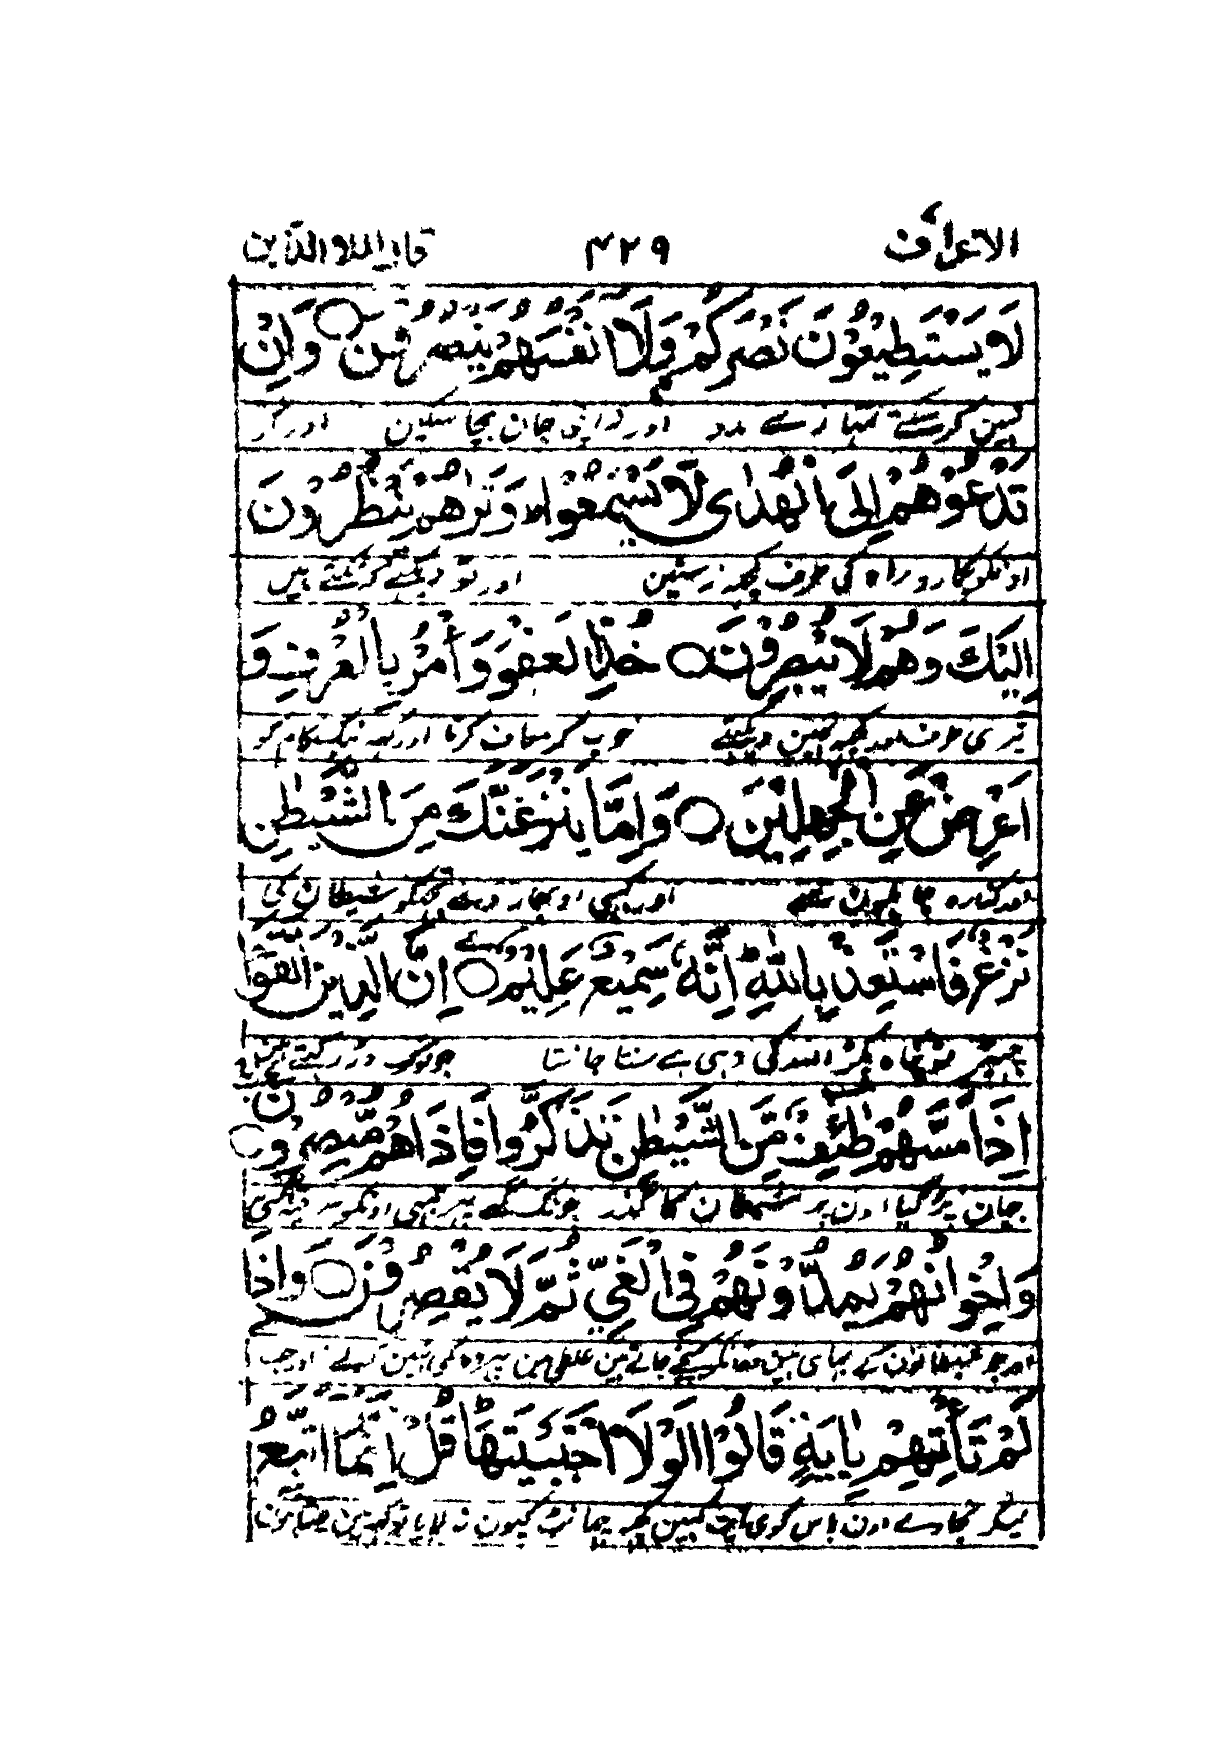 الاعراف ۴۲۹ قال الملأ الذين
لَا يَسْتَطِيْعُوْنَ نَصْرَكُمْ وَلَآ اَنْفُسَهُمْ يَنْصُرُوْنَ ○ وَاِنْ
نہیں کرسکتے تمہارے مدد اور نہ اپنی جان بچا سکیں اور گر
تَدْعُوْهُمْ اِلَى الْهُدٰى لَا يَسْمَعُوْا ؕ وَتَرٰىهُمْ يَنْظُرُوْنَ
اونکو پکارو راہ کی طرف کچھ نہ سنیں اور تو دیکھے کہ تکتے ہیں
اِلَيْكَ وَهُمْ لَا يُبْصِرُوْنَ ○ خُذِ الْعَفْوَ وَاْمُرْ بِالْعُرْفِ وَ
تیری طرف اور کچھ نہیں دیکھتے خوب کر معاف کرنا اور کہہ نیک کام کو
اَعْرِضْ عَنِ الْجٰهِلِيْنَ ○ وَاِمَّا يَنْزَغَنَّكَ مِنَ الشَّيْطٰنِ
اور کنارہ کر جاہلوں سے اور کبھی اوبھار دے تجکو شیطان کی
نَزْغٌ فَاسْتَعِذْ بِاللّٰهِ ؕ اِنَّهٗ سَمِيْعٌ عَلِيْمٌ ○ اِنَّ الَّذِيْنَ اتَّقَوْا
چھیڑ تو پناہ پکڑ اللہ کی وہی ہے سنتا جانتا جو لوگ ڈر رکھتے ہیں
اِذَا مَسَّهُمْ طٰٓئِفٌ مِّنَ الشَّيْطٰنِ تَذَكَّرُوْا فَاِذَا هُمْ مُّبْصِرُوْنَ ○
جہاں پڑ گیا اون پر شیطان کا گذر چونک گئے پھر تبھی اونکو سوجھ
وَاِخْوَانُهُمْ يَمُدُّوْنَهُمْ فِى الْغَىِّ ثُمَّ لَا يُقْصِرُوْنَ ○ وَاِذَا
اور جو شیطانوں کے بھائی ہیں کھینچے جاتے ہیں غلطی میں پھر وہ کمی نہیں کرتے اور جب
لَمْ تَاْتِهِمْ بِاٰيَةٍ قَالُوْا لَوْ لَا اجْتَبَيْتَهَا ؕ قُلْ اِنَّمَآ اَتَّبِعُ
لیکر نجاوے اون پاس کوئی آیت کہیں کچھ چھانٹ کیوں نہ لایا تو کہہ میں چلتا ہوں